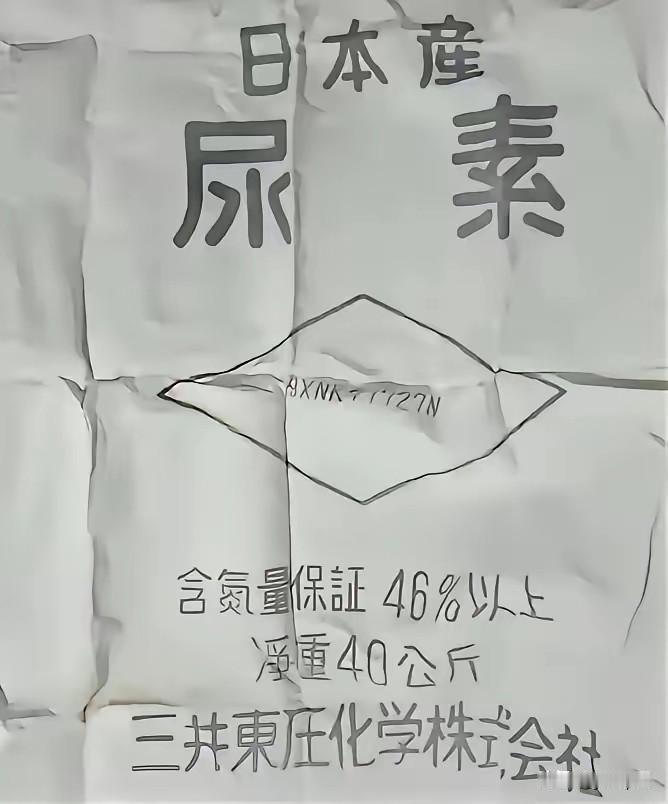 日本産
尿素
含氮量保証 46%以上
凈重40公斤
三井東圧化学株式会社